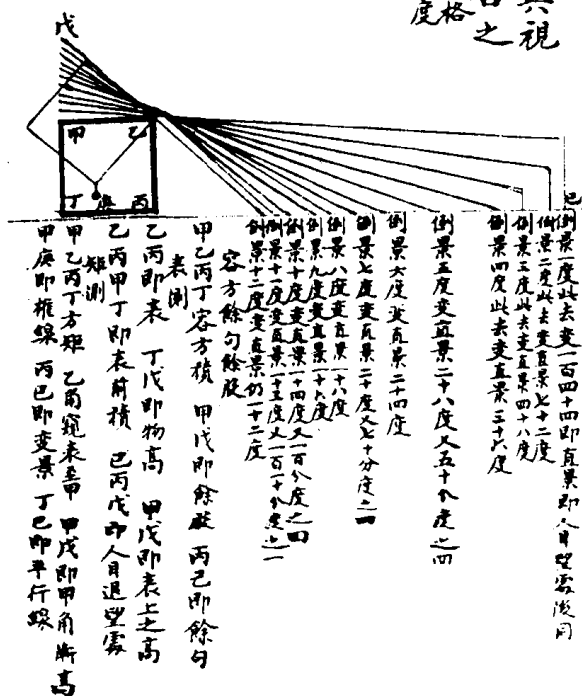 共視
之
格
度
戊
甲 乙
丁 庚 丙
己
倒景一度此去變一百四十四即直景即人目望處後同
倒景二度此去變直景七十二度
倒景三度此去變直景四十八度
倒景四度此去變直景三十六度
倒景五度變直景二十八度又五十分度之四
倒景六度變直景二十四度
倒景七度變直景二十度又七十分度之四
倒景八度變直景一十八度
倒景九度變直景一十六度
倒景十度變直景一十四度又一百分度之四
倒景十一度變直景一十三度又一百一十分度之一
倒景十二度變直景仍一十二度
容方餘句餘股
甲乙丙丁容方積 甲戊即餘股 丙己即餘句
表測
乙丙即表 丁戊即物高 甲戊即表上之高
乙丙甲丁即表前積 己丙戊即人目退望處
矩測
甲乙丙丁方矩 乙角窺表至甲 甲戊即甲角斯高
甲庚即權線 丙己即變景 丁己即平行線